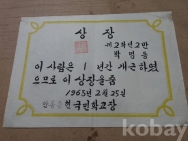 상장
제2학년2반
이 사람은 1 년간 개근 하였
으므로 이 상장을줌
1963년 2월 25일
국민학교장
kobay